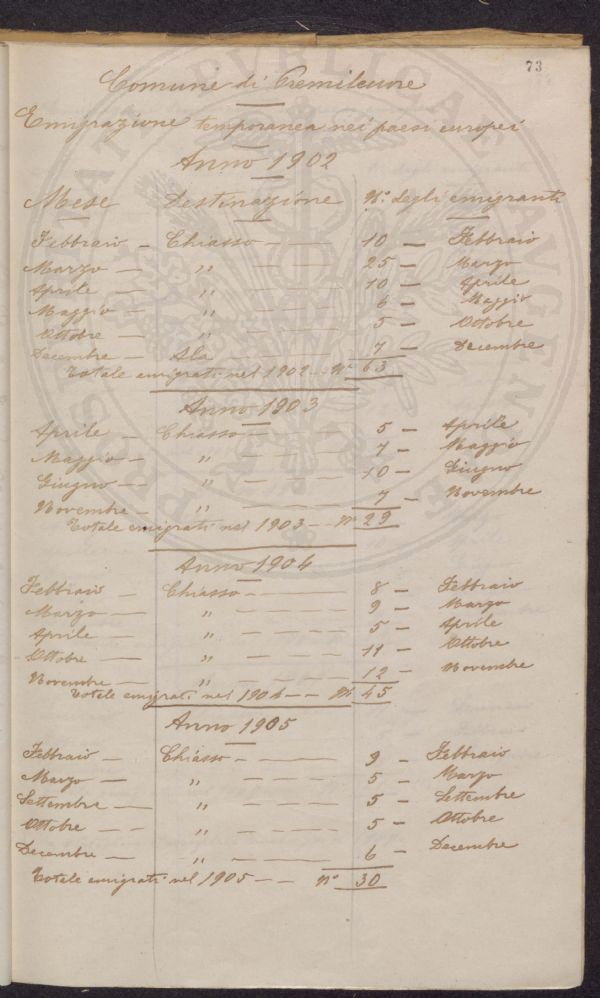 73
Comune di Premilcuore
Emigrazione temporanea nei paesi europei
Anno 1902
Mese Destinazione N.° degli emigranti
Febbraio — Chiasso — 10 — Febbraio
Marzo — „ — 25 — Marzo
Aprile — „ — 10 — Aprile
Maggio — „ — 6 — Maggio
Ottobre — „ — 5 — Ottobre
Decembre — Ala — 7 — Decembre
Totale emigrati nel 1902 — N.° 63
Anno 1903
Aprile — Chiasso — 5 — Aprile
Maggio — „ — 7 — Maggio
Giugno — „ — 10 — Giugno
Novembre — „ — 7 — Novembre
Totale emigrati nel 1903 — N.° 29
Anno 1904
Febbraio — Chiasso — 8 — Febbraio
Marzo — „ — 9 — Marzo
Aprile — „ — 5 — Aprile
Ottobre — „ — 11 — Ottobre
Novembre — „ — 12 — Novembre
Totale emigrati nel 1904 — N.° 45
Anno 1905
Febbraio — Chiasso — 9 — Febbraio
Marzo — „ — 5 — Marzo
Settembre — „ — 5 — Settembre
Ottobre — „ — 5 — Ottobre
Decembre — „ — 6 — Decembre
Totale emigrati nel 1905 — N.° 30